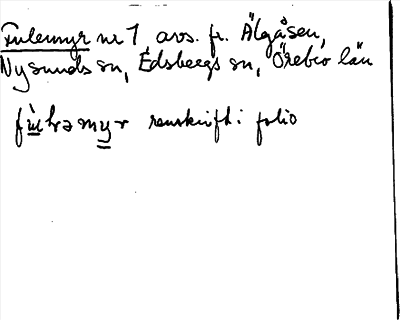 Fulemyr nr 1 avs. fr. Älgåsen,
Nysunds sn, Edsbergs sn, Örebro län
renskrift i folio